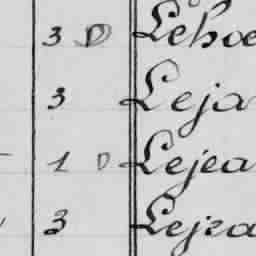 3 D Lehoe
3 Leja
1 D Lejea
3 Lejza